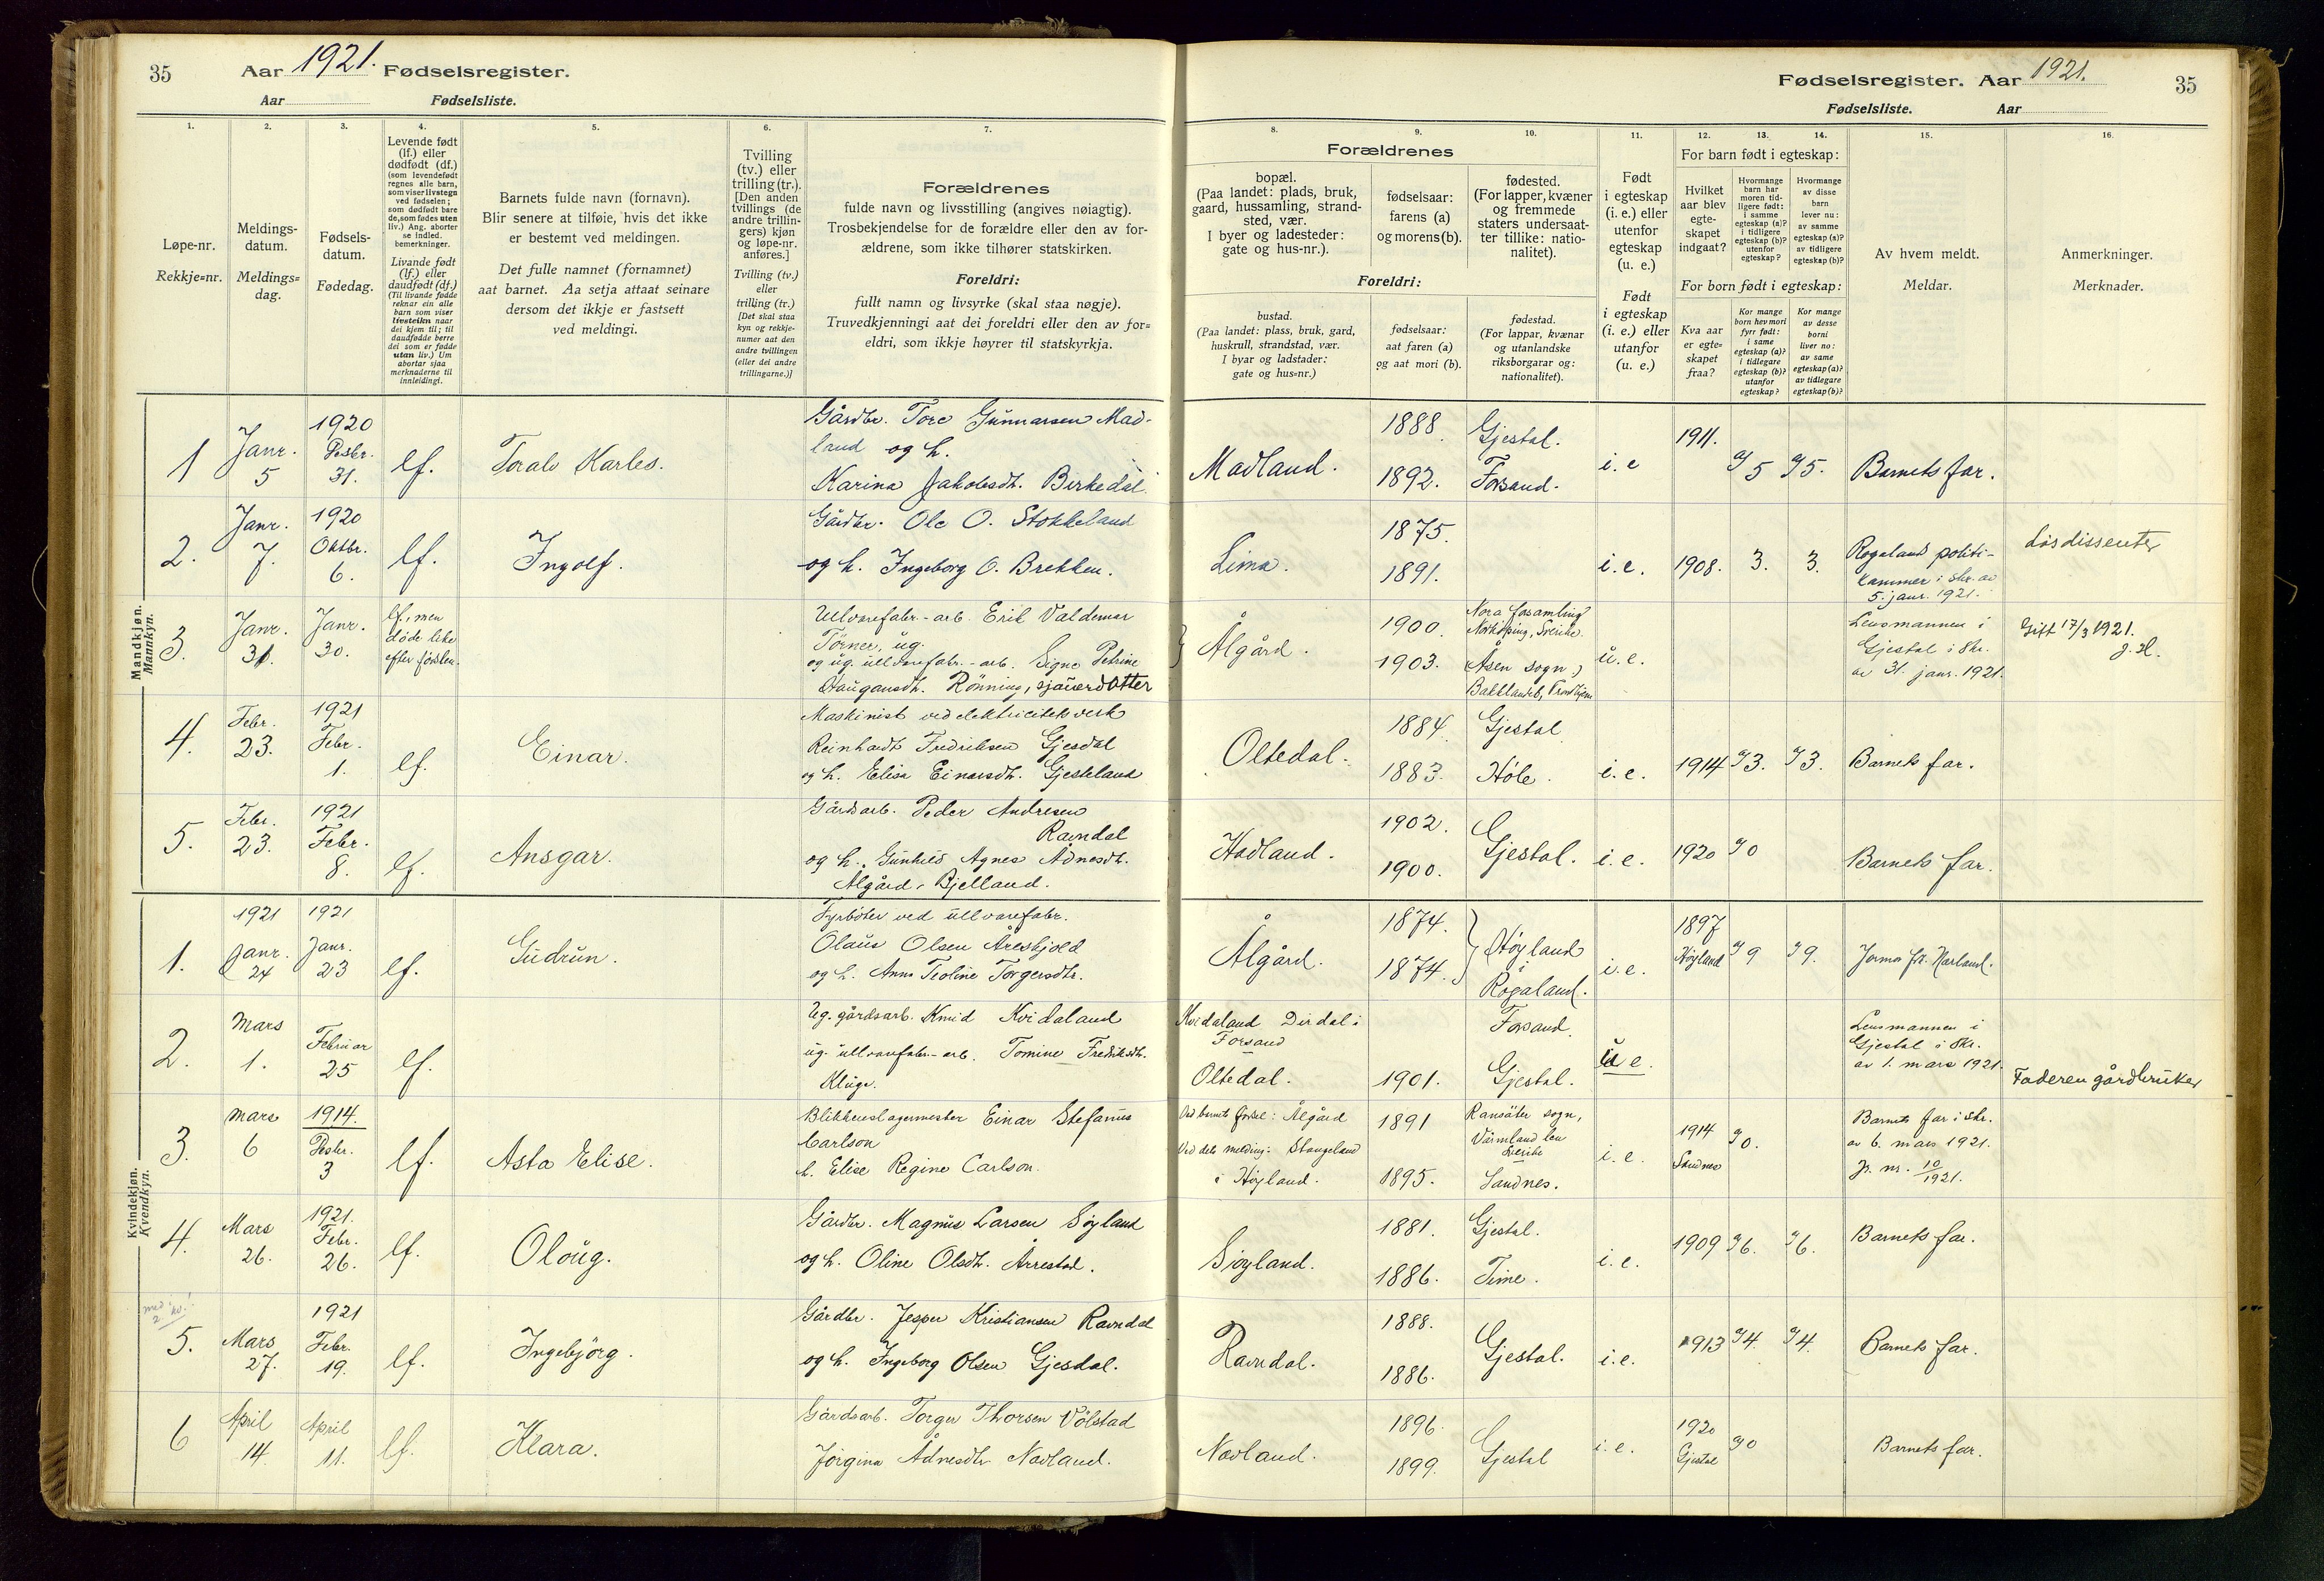 35
Aar 1921. Fødselsregister.
Aar Fødselsliste.
Fødselsregister. Aar 1921.
35
Fødselsliste. Aar
1.
Løpe-nr.
Rekkje=nr.
2.
Meldings-
datum.
Meldings=
dag.
3.
Fødsels-
datum.
Fødedag.
4.
Levende født
(lf.) eller
dødfødt (df.)
(som levendefødt
regnes alle barn,
som viser livstegn
ved fødselen;
som dødfødt bare
de, som fødes uten
liv.) Ang. aborter
se indled.
bemerkninger.
Livande født
(lf.) eller
daudfødt (df.)
(Til livande fødde
reknar ein alle
barn som viser
livsteikn naar
dei kjem til; til
daudfødde berre
dei som er fødde
utan liv.) Um
abortar sjaa
merknaderne til
innleidingi.
5.
Barnets fulde navn (fornavn).
Blir senere at tilføie, hvis det ikke
er bestemt ved meldingen.
Det fulle namnet (fornamnet)
aat barnet. Aa setja attaat seinare
dersom det ikkje er fastsett
ved meldingi.
6.
Tvilling
(tv.) eller
trilling (tr.).
[Den anden
tvillings (de
andre trillin-
gers) kjøn
og løpe-nr.
anføres.]
Tvilling (tv.)
eller
trilling (tr.)
[Det skal staa
kyn og rekkje-
numer aat den
andre tvillingen
(eller dei andre
trillingarne.)]
7.
Forældrenes
fulde navn og livsstilling (angives nøiagtig).
Trosbekjendelse for de forældre eller den av for-
ældrene, som ikke tilhører statskirken.
Foreldri:
fullt namn og livsyrke (skal staa nøgje).
Truvedkjenningi aat dei foreldri eller den av for=
eldri, som ikkje høyrer til statskyrkja.
8.
Forældrenes
bopæl.
(Paa landet: plads, bruk,
gaard, hussamling, strand-
sted, vær.
I byer og ladesteder:
gate og hus-nr.).
Foreldri:
bustad.
(Paa landet: plass, bruk, gard,
huskrull, strandstad, vær.
I byar og ladstader:
gate og hus=nr.)
9.
fødselsaar:
farens (a)
og morens (b).
fødselsaar:
aat faren (a)
og aat mori (b).
10.
fødested.
(For lapper, kvæner
og fremmede
staters undersaat-
ter tillike: natio-
nalitet).
fødestad.
(For lappar, kvænar
og utanlandske
riksborgarar og:
nationalitet).
11.
Født
i egteskap
(i. e.) eller
utenfor
egteskap
(u. e.)
Født
i egteskap
(i. e.) eller
utanfor
(u. e.)
12. 13. 14.
For barn født i egteskap:
Hvilket
aar blev
egte-
skapet
indgaat?
Hvormange
barn har
moren tid-
ligere født:
i samme
egteskap (a)?
i tidligere
egteskap (b)?
utenfor
egteskap?
Hvormange
av disse
barn
lever nu:
av samme
egteskap (a)?
av tidligere
egteskap (b)?
For born født i egteskap:
Kva aar
er egte=
skapet
fraa?
Kor mange
born hev mori
fyrr født:
i same
egteskap (a)?
i tidlegare
egteskap (b)?
utanfor
egteskap?
Kor mange
av desse
borni
liver no:
av same
egteskap (a)?
av tidlegare
egteskap (b)?
15.
Av hvem meldt.
Meldar.
16.
Anmerkninger.
Merknader.
Mandkjøn.
Mannkyn.
1
Janr.
5
1920
Desbr.
31.
lf.
Toralv Karles.
Gårdbr. Tore Gunnarsen Mad-
land og h.
Karina Jakobsdt. Birkedal.
Madland.
1888
1892.
Gjestal.
Forsand.
i. e
1911.
5
5.
Barnets far.
2.
Janr.
7.
1920
Oktbr.
6.
lf.
Ingolf.
Gårdbr. Ole O. Stokkeland
og h. Ingeborg O. Brekken.
Lima.
1875.
1891.
i. e.
1908.
3.
3.
Rogaland politi-
kammer i skr. av
5. janr. 1921.
Løsdissenter
3.
Janr.
31.
Janr.
30.
lf., men
døde like
efter førslen.
Ullvarefabr.-arb. Erik Valdemar
Törner, ug.
og ug. ullvarefabr.-arb. Signe Petrine
Haugansdt. Rönning, sjauerdotter
Ålgård.
1900.
1903.
Nora forsamling
Norköping, Sverike.
Åsen sogn,
Baklandet, Trondhjem
u. e.
Lensmannen i
Gjestal i skr.
av 31. janr. 1921.
Gift 17/3 1921.
4.
Febr.
23.
1921
Febr.
1.
lf.
Einar.
Maskinist ved elektricitetsverk
Reinhardt Fredriksen Gjesdal
og h. Elisa Einarsdt. Gjesteland
Oltedal.
1884
1883.
Gjestal
Høle.
i. e.
1914
3.
3.
Barnets far.
5.
Febr.
23.
1921
Febr.
8.
lf.
Ansgar.
Gårdsarb. Peder Andresen
Ravndal
og h. Gunhild Agnes Ådnesdt.
Ålgård, Bjelland.
Hadland.
1902.
1900.
Gjestal.
i. e.
1920
0
Barnets far.
Kvindekjøn.
Kvendkyn.
1.
1921
Janr.
24
1921
Janr.
23
lf.
Gudrun.
Fyrbøter ved ullvarefabr.
Olaus Olsen Åreskjold
og h. Anna Teoline Torgersdtr.
Ålgård.
1874.
1874.
Høyland
Rogaland.
i. e.
1897
Høyland
9
9.
Jormor fr. Harland.
2.
Mars
1.
Februar
25
lf.
Ug. gårdsarb. Knud Kvidaland
ug. ullvarefabr.-arb. Tomine Fredriksdt.
Kluge.
Kvidaland Dirdal i
Forsand
Oltedal.
1901.
Forsand.
Gjestal.
u e.
Lensmannen i
Gjestal i skr.
av 1. mars 1921.
Faderen gårdbruker
3.
Mars
6
1914.
Desbr.
3
lf.
Asta Elise.
Blikkenslagermester Einar Stefanus
Carlson
h. Elise Regine Carlson.
Ved barnets fødsel: Ålgård
Ved dets melding: Stangeland
i Høyland.
1891
1895.
Ransäter sogn,
Värmland len
Sverike
Sandnes.
i. e.
1914
Sandnes
0.
Barnets far i skr.
av 6. mars 1921.
p. nr. 10/1921.
4.
Mars
26.
1921.
Febr.
26.
lf.
Olaug.
Gårdbr. Magnus Larsen Søyland
og h. Oline Olsdt. Årrestad.
Søyland.
1881.
1886.
Gjestal.
Time.
i. e.
1909
6.
6.
Barnets far.
5.
Mars
27.
1921
Febr.
19.
lf.
Ingebjörg.
Gårdbr. Jesper Kristiansen Ravndal
og h. Ingeborg Olsen Gjesdal.
Ravndal.
1888.
1886.
Gjestal.
i. e.
1913
4.
4.
Barnets far.
6
April
14.
April
11.
lf.
Klara.
Gårdsarb. Torger Thorsen Vølstad
Jørgina Ådnesdtr Nødland.
Nødland.
1896.
1899.
Gjestal
i. e.
1920
Gjestal
0
Barnets far.